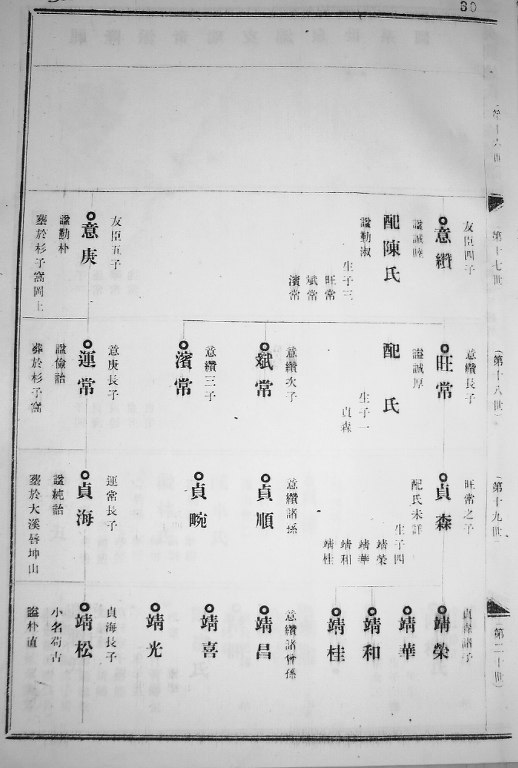 30
第十六世
第十七世
友臣四子
意纘
諡誠睦
配陳氏
諡勤淑
生子三
旺常
斌常
濱常
友臣五子
意庚
諡勤朴
塟於杉子窩岡上
(第十八世)
意纘長子
旺常
諡誠厚
配　氏
生子一
貞森
意纘次子
斌常
意纘三子
濱常
意庚長子
運常
諡儉詒
葬於杉子窩
(第十九世)
旺常之子
貞森
配氏未詳
生子四
靖榮
靖華
靖和
靖桂
意纘諸孫
貞順
貞畹
運常長子
貞海
諡純詒
塟於大溪唇坤山
(第二十世)
貞森諸子
靖榮
靖華
靖和
靖桂
意纘諸曾孫
靖昌
靖喜
靖光
貞海長子
靖松
小名苟古
諡朴直